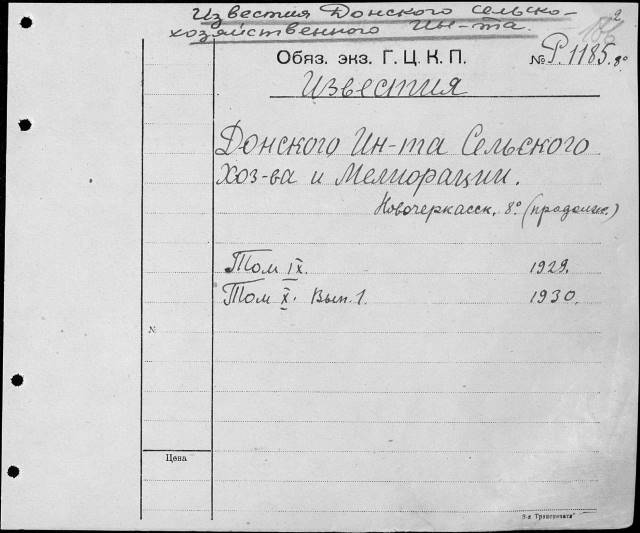 Известия Донского Сельско-
хозяйственного Ин-та.
Обяз. экз. Г. Ц. К. П.
№ Р. 1185. 8°
Известия
Донского Ин-та Сельского
Хоз-ва и Мелиорации.
Новочеркасск, 8° (продолж.)
Том IX. 1929.
Том X. Вып. 1. 1930.
№
Цена